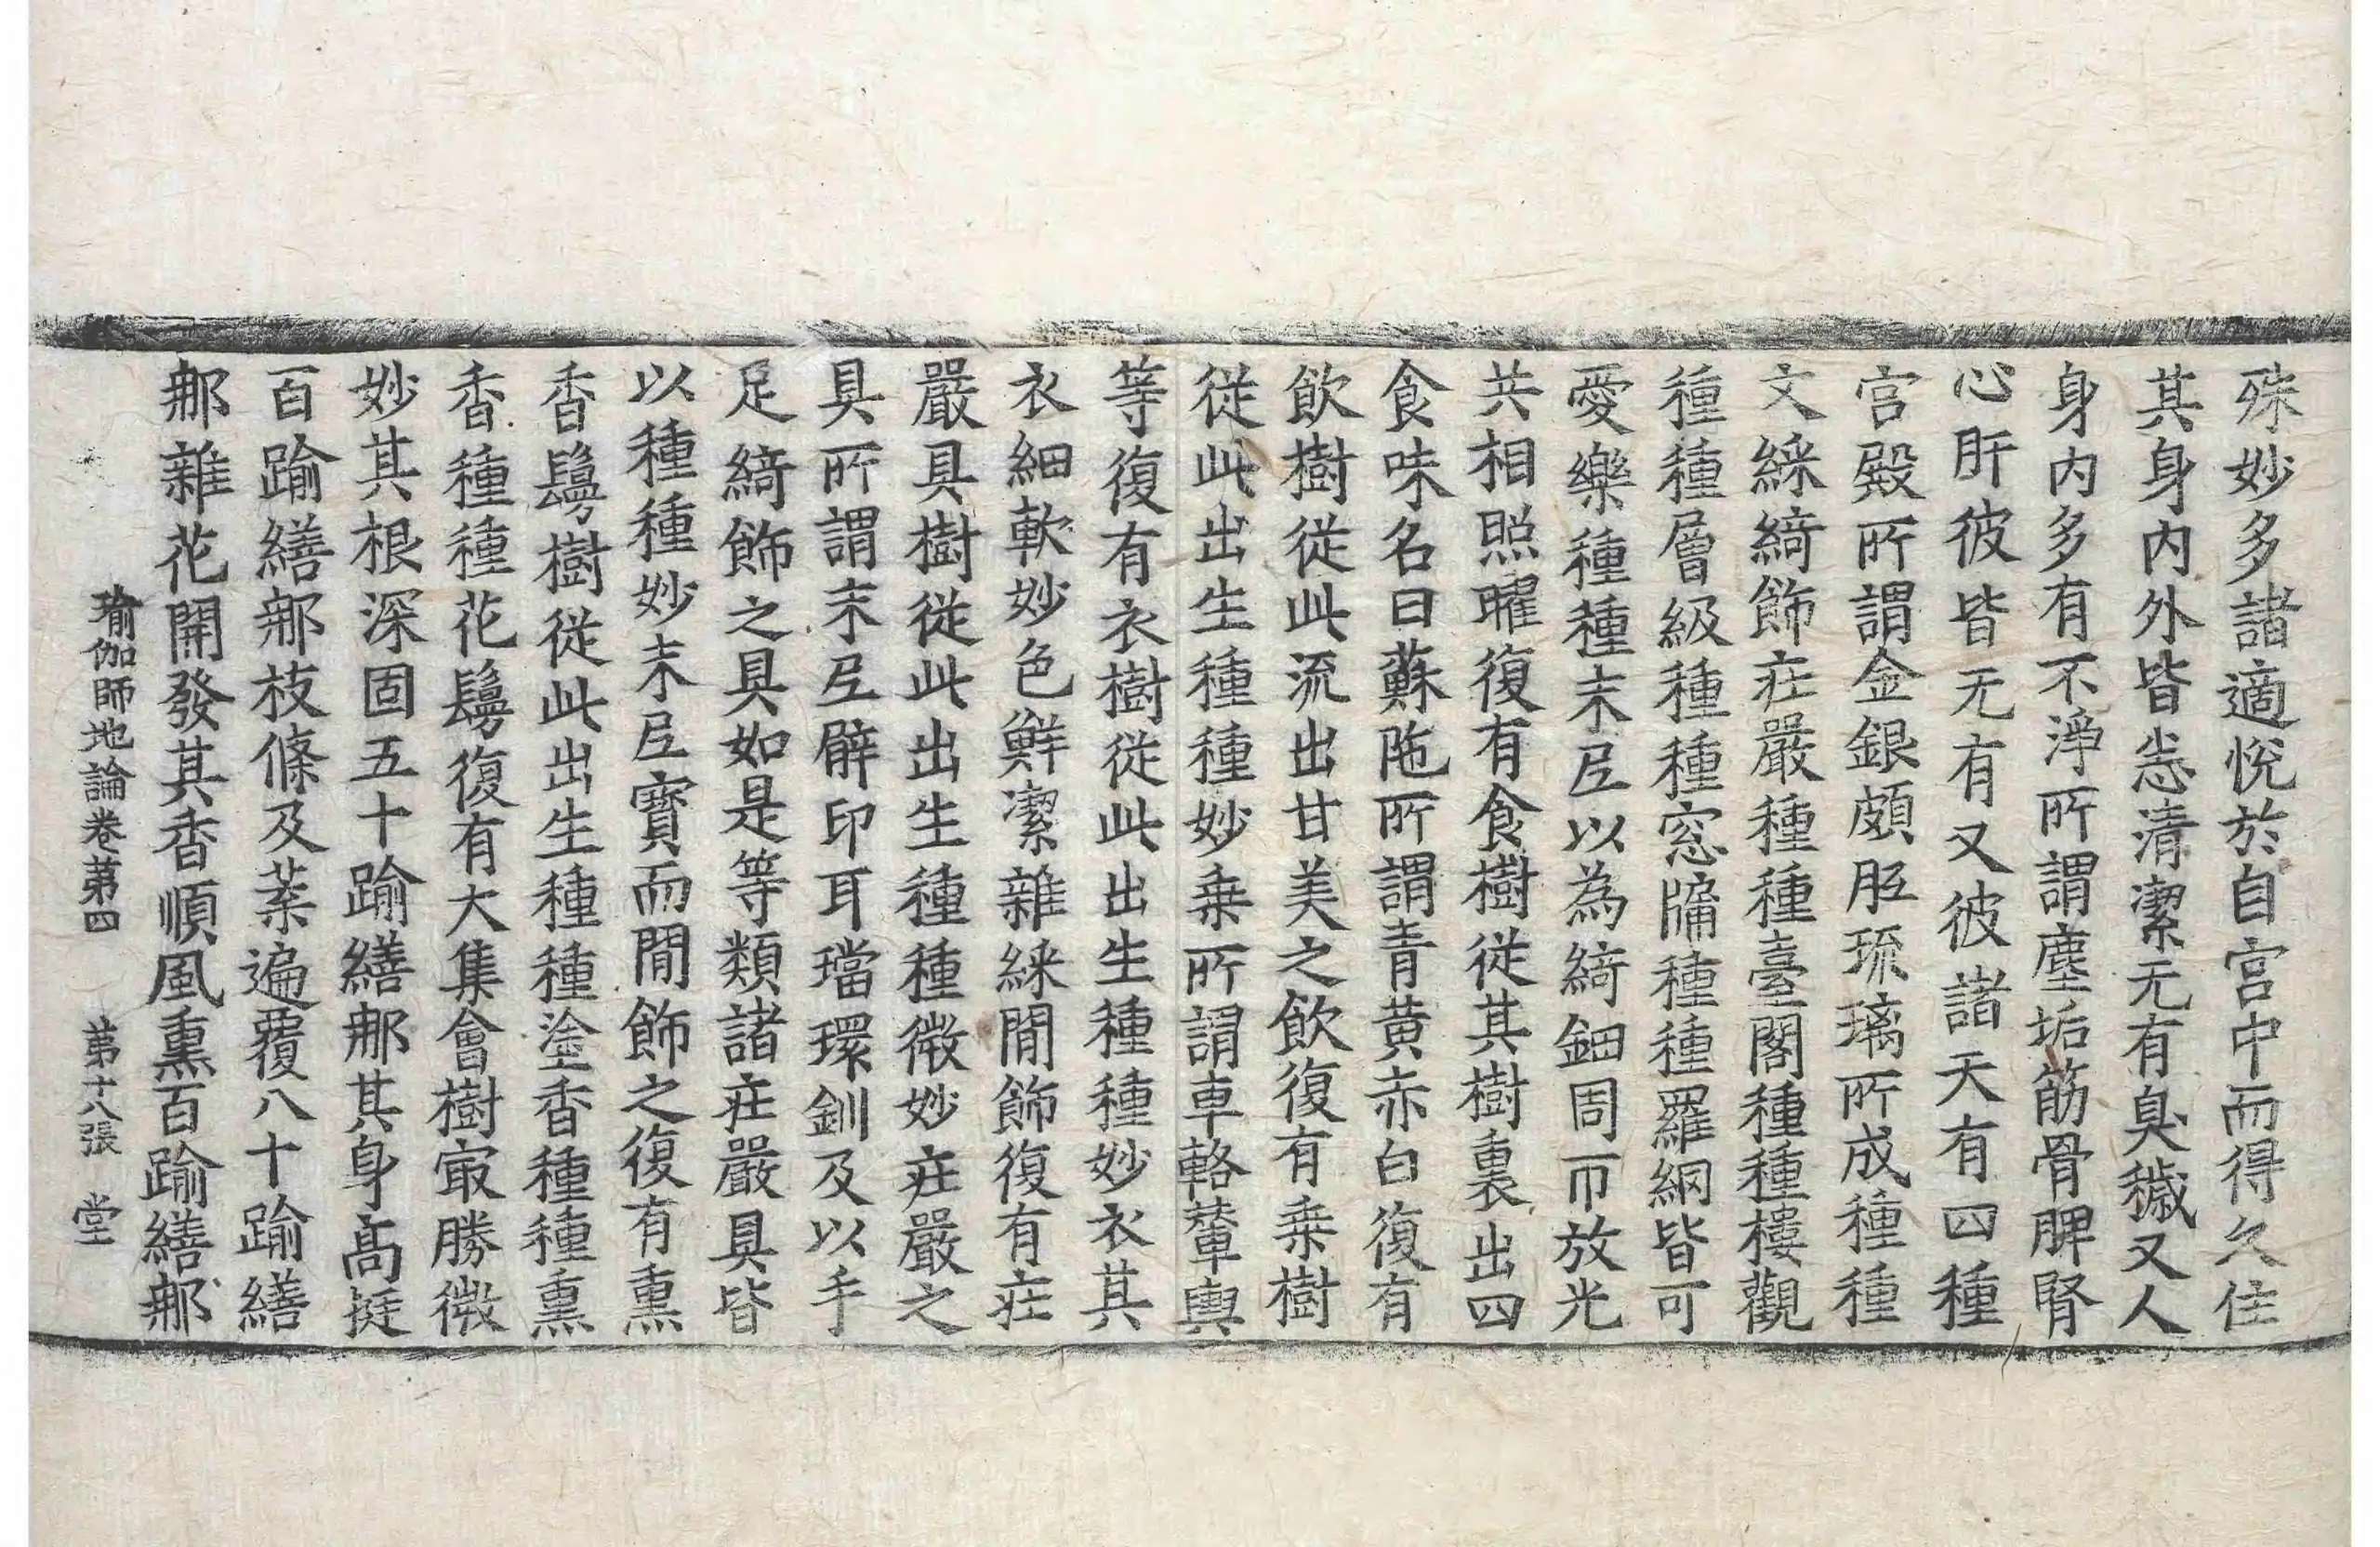 殊妙多諸適悅於自宮中而得久住
其身內外皆悉清潔无有臭穢又人
身內多有不淨所謂塵垢筋骨脾腎
心肝彼皆无有又彼諸天有四種
宮殿所謂金銀頗胝琉璃所成種種
文綵綺飾庄嚴種種臺閣種種樓觀
種種層級種種窓牖種種羅網皆可
愛樂種種末尼以為綺鈿周帀放光
共相照曜復有食樹從其樹裏出四
食味名曰蘇陁所謂青黃赤白復有
飲樹從此流出甘美之飲復有乗樹
從此出生種種妙乗所謂車輅輦輿
等復有衣樹從此出生種種妙衣其
衣細軟妙色鮮潔雜綵間飾復有庄
嚴具樹從此出生種種微妙庄嚴之
具所謂末尼臂印耳璫環釧及以手
足綺飾之具如是等類諸庄嚴具皆
以種種妙末尼寶而間飾之復有熏
香鬘樹從此出生種種塗香種種熏
香種種花鬘復有大集會樹㝡勝微
妙其根深固五十踰繕那其身高挺
百踰繕那枝條及葉遍覆八十踰繕
那雜花開發其香順風熏百踰繕那
瑜伽師地論卷苐四 苐十八張 堂